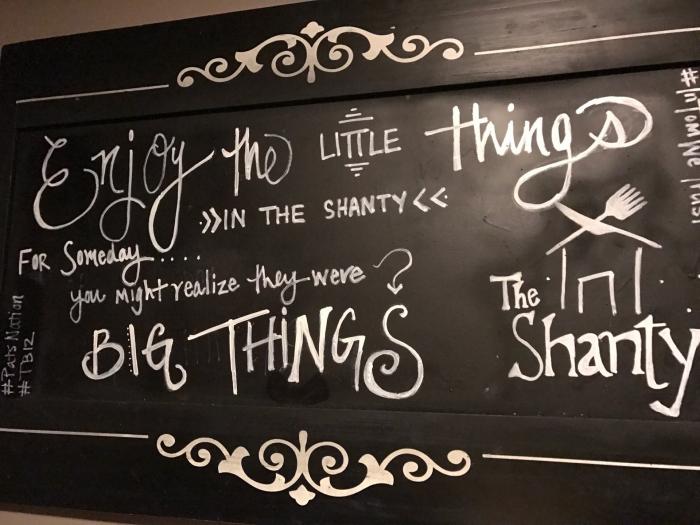 Enjoy the LITTLE things
»IN THE SHANTY«
FOR Someday.....
you might realize they were
BIG THINGS
The
Shanty
#PatsNation
#TB12